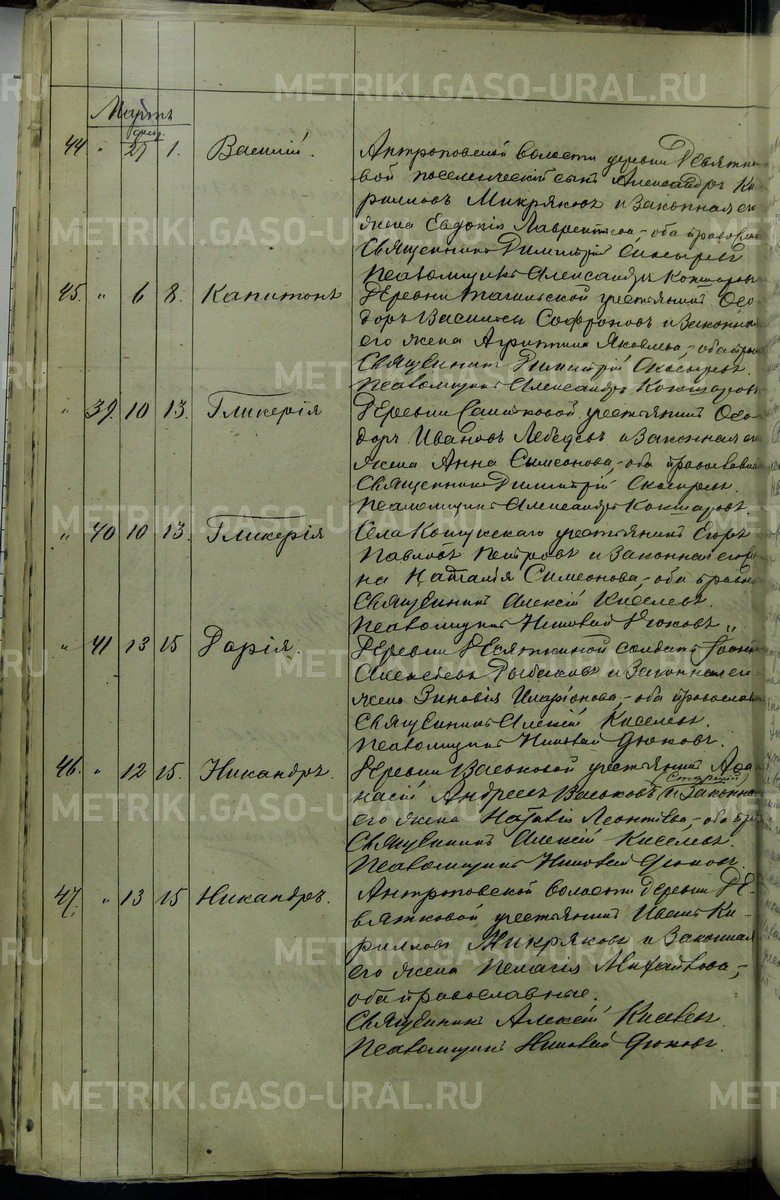 METRIKI.GASO-URAL.RU
Мартъ
44. " 27 1. Василій. Антроповской волости деревни Девятко-
вой поселенческій сынъ Александръ Ки-
рилловъ Микряковъ и законная его
жена Евдокія Лаврентьева, - оба православ
Священникъ Димитрій Скосыревъ
Псаломщикъ Александръ Кокшаровъ
45. " 6 8. Капитонъ Деревни крестьянинъ Ѳео-
доръ Васильевъ Софроновъ и законная
его жена Агриппина Яковлева, - оба прав
Священникъ Димитрій Скосыревъ.
Псаломщикъ Александръ Кокшаровъ
" 39 10 13. Гликерія Деревни крестьянинъ Ѳео-
доръ Ивановъ Лебедевъ и законная его
жена Анна Симеонова, - оба православные
Священникъ Димитрій Скосыревъ.
Псаломщикъ Александръ Кокшаровъ.
" 40 10 13. Гликерія Села крестьянинъ Егоръ
Павловъ Петровъ и законная его же
на Наталья Симеонова, - оба правос
Священникъ Алексій Киселевъ.
Псаломщикъ Николай Дюковъ "
" 41 13 15 Дарія. Деревни солдатъ
Алексѣевъ Рыбаковъ и законная его
жена Зиновія Иларіонова, - оба православ
Священникъ Алексій Киселевъ.
Псаломщикъ Николай Дюковъ.
46. " 12 15. Никандръ. Деревни Васьковой крестьянинъ Аѳа-
(Старшій)
насій Андреевъ Васьковъ и законная
его жена Наталія Леонтьева, - оба пра
Священникъ Алексій Киселевъ.
Псаломщикъ Николай Дюковъ.
47. " 13 15 Никандръ. Антроповской волости деревни Де-
вятковой крестьянинъ Иванъ Ки-
рилловъ Микряковъ и законная
его жена Пелагія Михайлова, -
оба православные.
Священникъ Алексій Киселевъ
Псаломщикъ Николай Дюковъ.